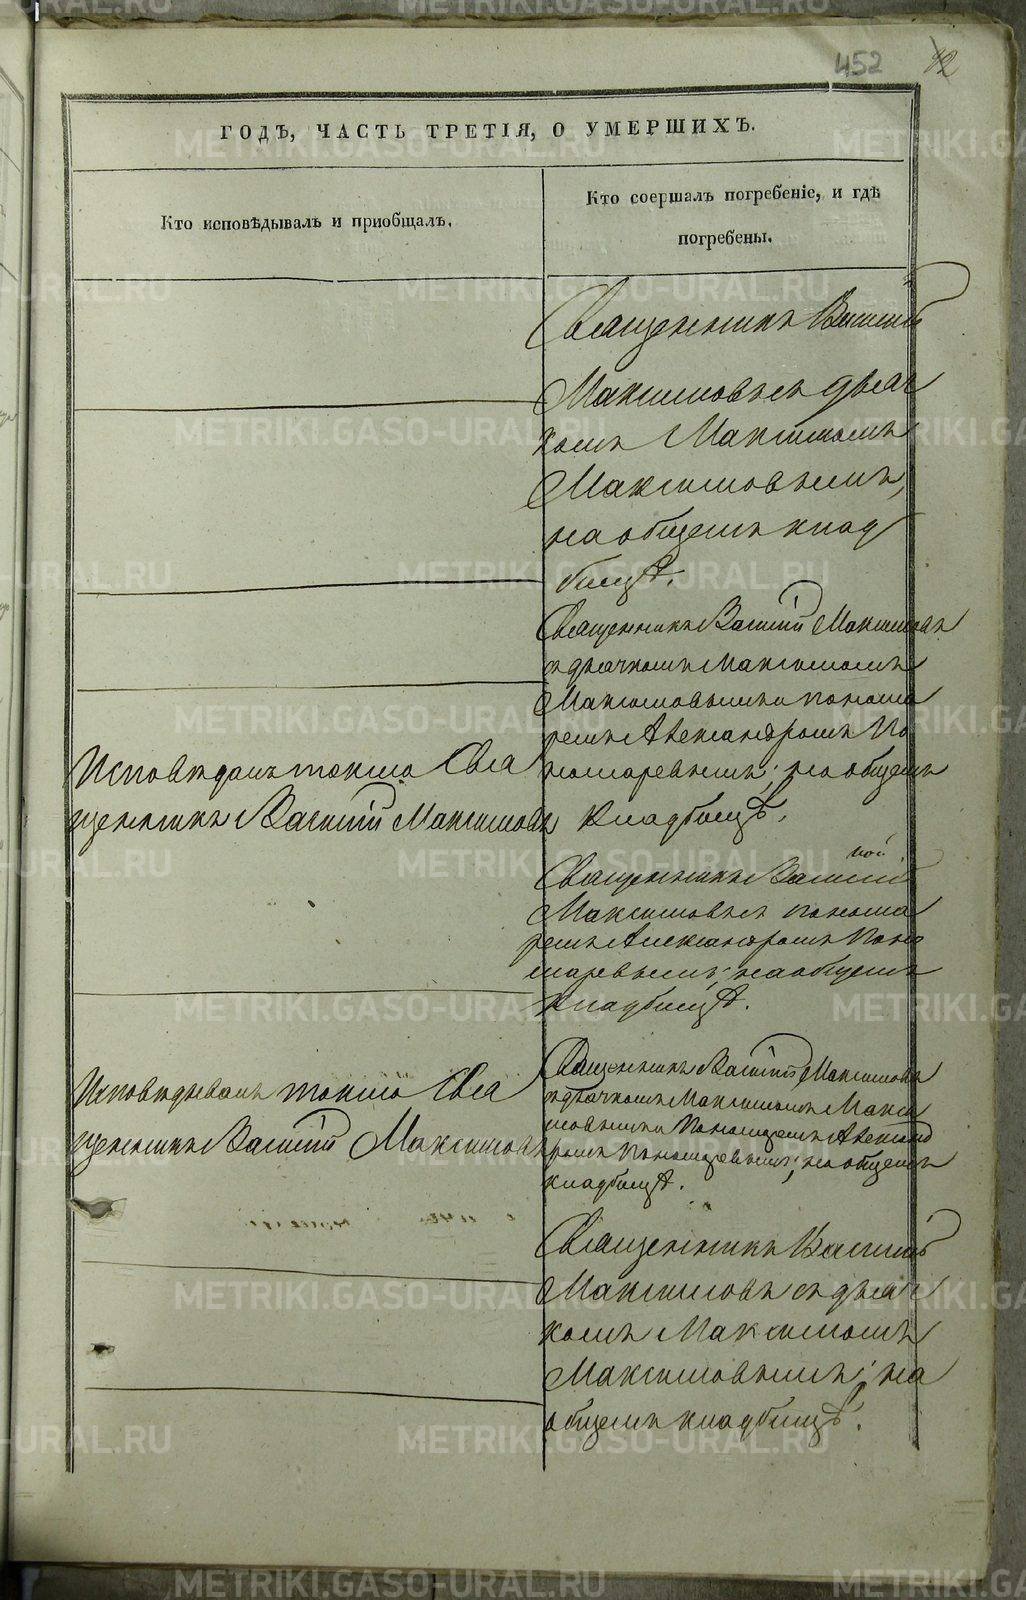 452
ГОДЪ, ЧАСТЬ ТРЕТІЯ, О УМЕРШИХЪ.
Кто исповѣдывалъ и пріобщалъ.
Кто соершалъ погребеніе, и гдѣ
погребены.
Священникъ Василій
Максимовъ съ дьяч
комъ Максимомъ
Максимовымъ,
на общемъ клад
бищѣ.
Священникъ Василій Максимовъ
съ дьячкомъ Максимомъ
Максимовымъ и понома
ремъ Александромъ По
номаревымъ; на общемъ
кладбищѣ.
Исповѣдалъ токмо Свя
щенникъ Василій Максимовъ
Священникъ Василій
Максимовъ съ понома
ремъ Александромъ Поно
маревымъ; на общемъ
кладбищѣ.
Исповѣдывалъ токмо Свя
щенникъ Василій Максимовъ
Священникъ Василій Максимовъ
съ дьячкомъ Максимомъ Макси
мовымъ и Пономаремъ Александ
ромъ Пономаревымъ; на общемъ
кладбищѣ.
Священникъ Василій
Максимовъ съ дьяч
комъ Максимомъ
Максимовымъ; на
общемъ кладбищѣ.
METRIKI.GASO-URAL.RU